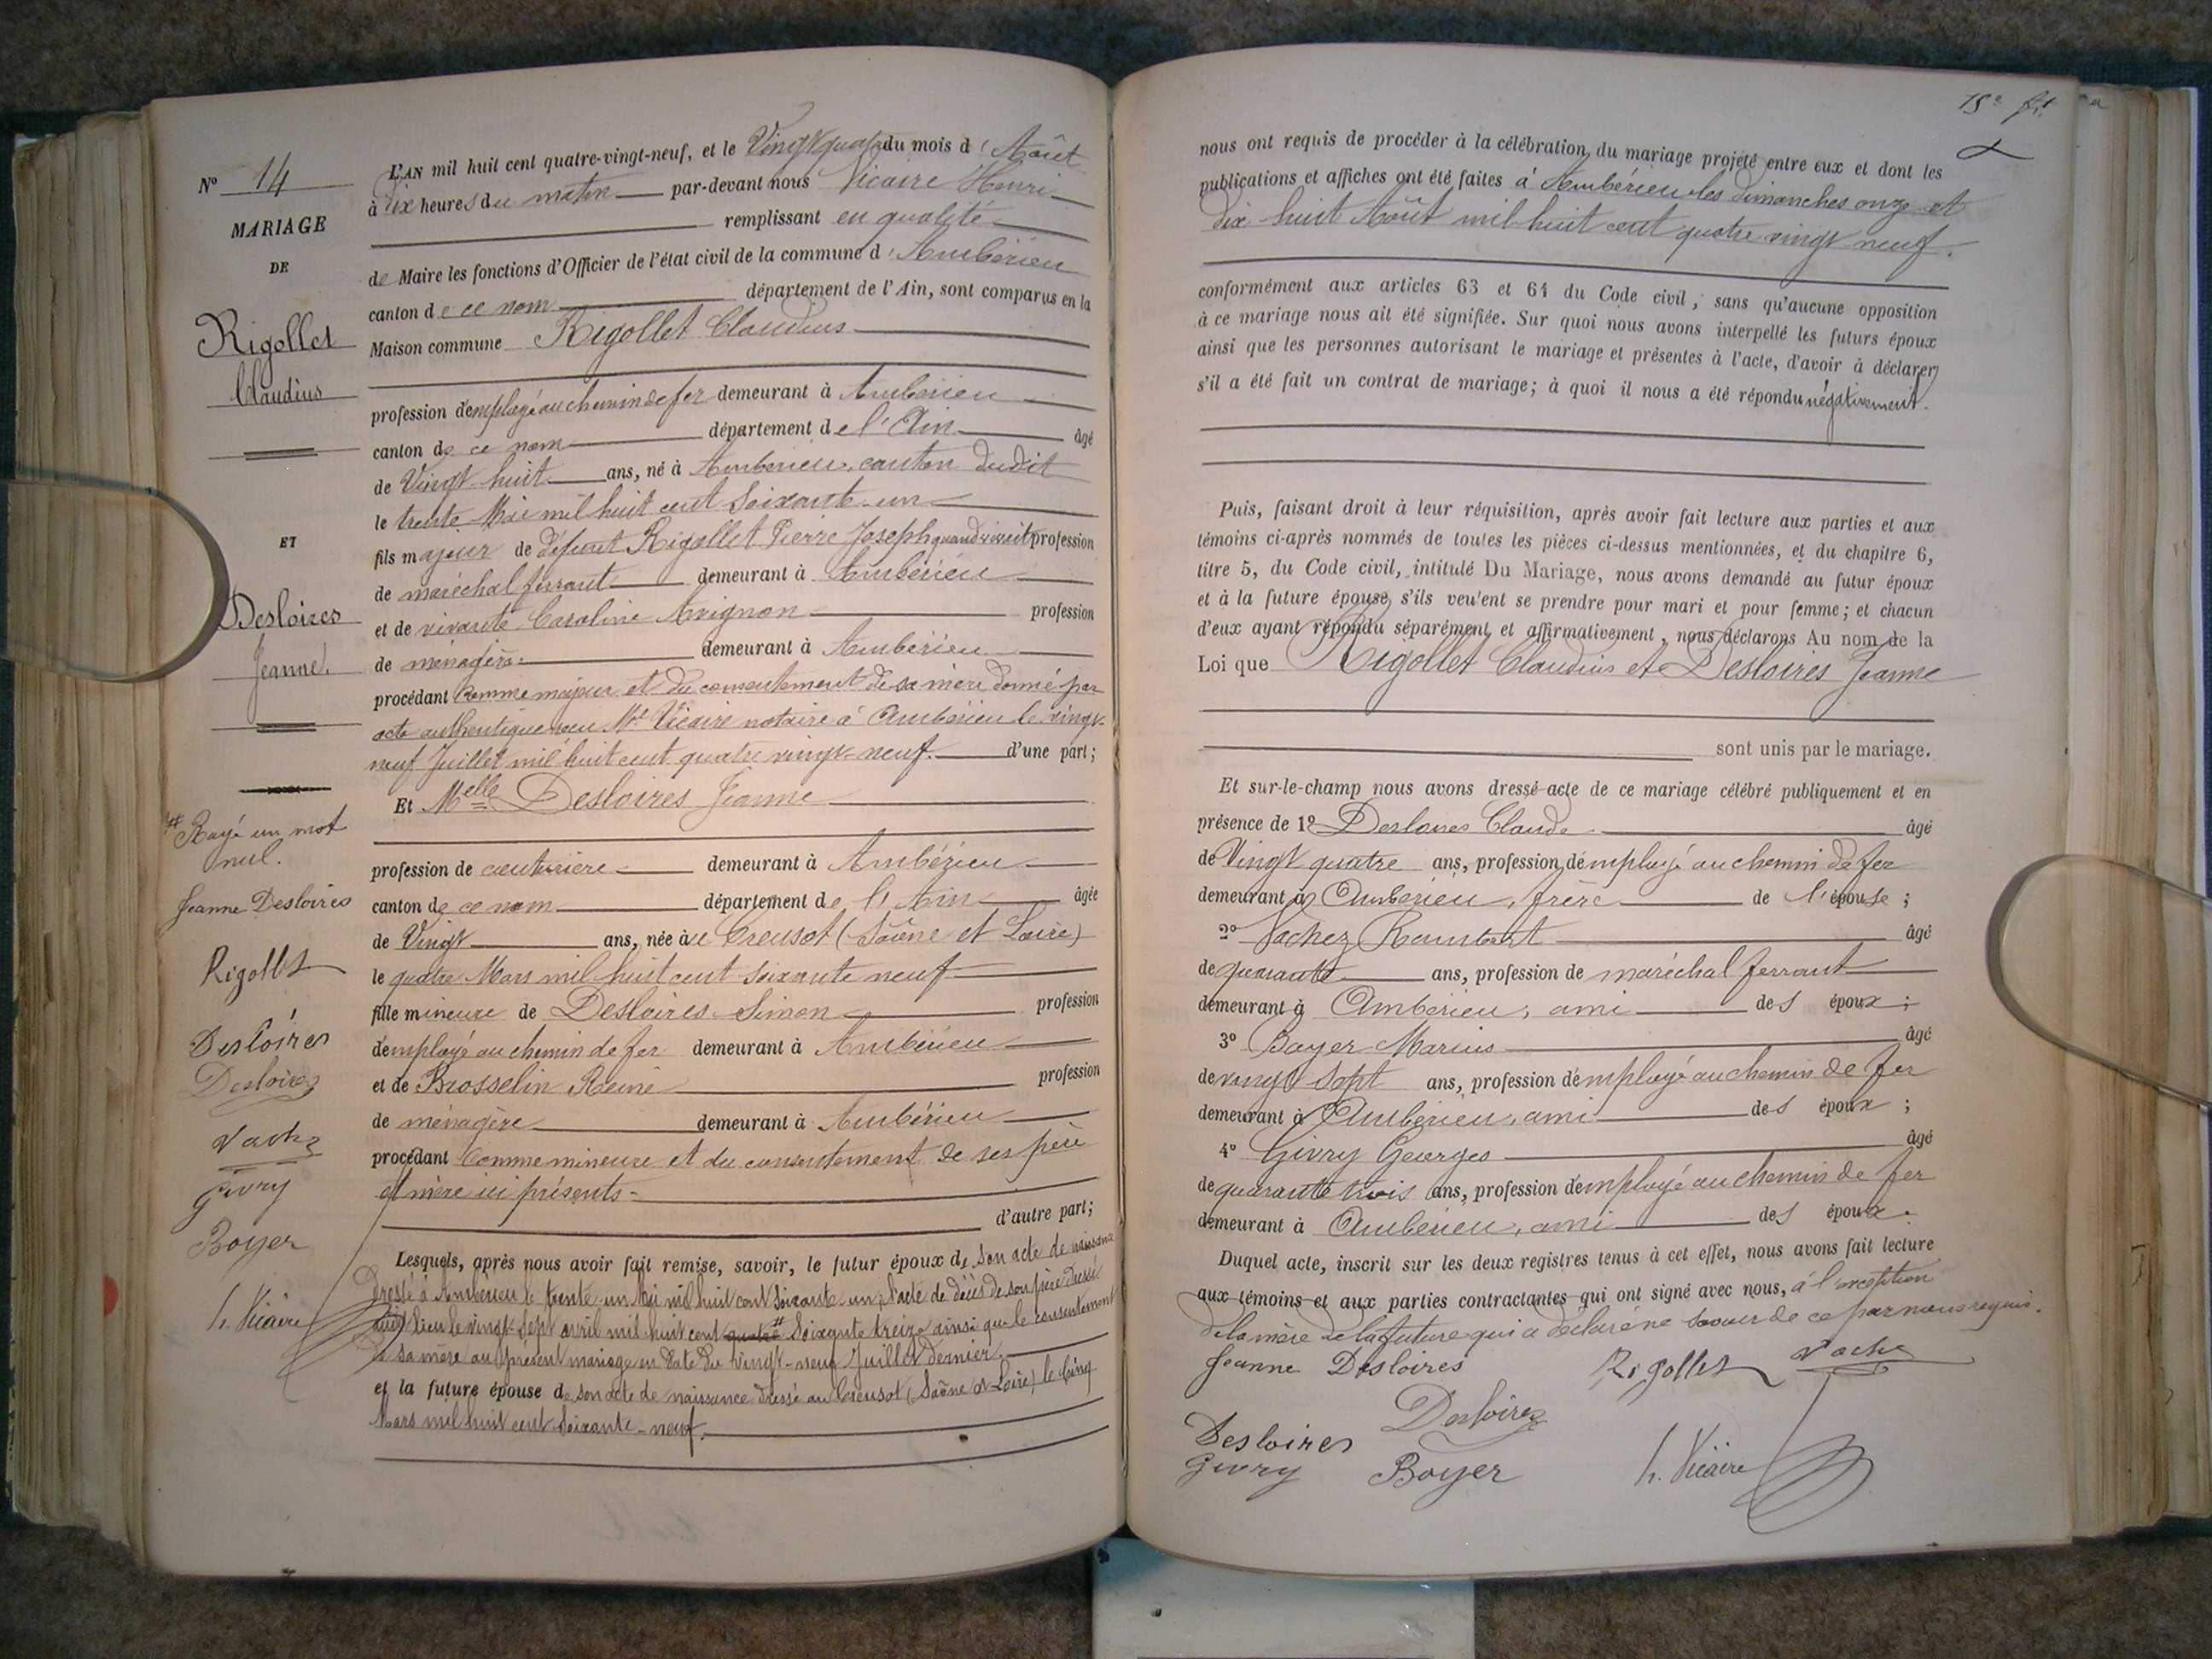 N° 14
MARIAGE
DE
Rigollet
Claudius
ET
Desloires
Jeanne.
# Rayé un mot
nul.
Jeanne Desloires
Rigollet
Desloires
Desloires
Vachez
Givry
Boyer
h. Vicaire
L'AN mil huit cent quatre-vingt-neuf, et le Vingt quatre du mois d'Août
à dix heures du matin par-devant nous Vicaire Henri
remplissant en qualité
de Maire les fonctions d'Officier de l'état civil de la commune d'Ambérieu
canton de ce nom département de l'Ain, sont comparus en la
Maison commune Rigollet Claudius
profession d'employé au chemin de fer demeurant à Ambérieu
canton de ce nom département de l'Ain âgé
de Vingt huit ans, né à Ambérieu, canton dudit
le trente Mai mil huit cent soixante-un
fils majeur de défunt Rigollet Pierre Joseph quand vivait profession
de maréchal ferrant demeurant à Ambérieu
et de vivante Caroline Avignon profession
de ménagère demeurant à Ambérieu
procédant comme majeur et du consentement de sa mère donné par
acte authentique reçu Me Vicaire notaire à Ambérieu le vingt-
neuf Juillet mil huit cent quatre vingt-neuf. d'une part;
Et Melle Desloires Jeanne
profession de couturière demeurant à Ambérieu
canton de ce nom département de l'Ain âgée
de Vingt ans, née au Creusot (Saône et Loire)
le quatre Mars mil huit cent soixante neuf
fille mineure de Desloires Simon profession
d'employé au chemin de fer demeurant à Ambérieu
et de Brosselin Reine profession
de ménagère demeurant à Ambérieu
procédant comme mineure et du consentement de ses père
et mère ici présents
d'autre part;
Lesquels, après nous avoir fait remise, savoir, le futur époux de son acte de naissance
dressé à Ambérieu le trente-un Mai mil huit cent soixante-un, l'acte de décès de son père dressé
audit lieu le vingt-sept avril mil huit cent quatre # soixante treize ainsi que le consentement
de sa mère au présent mariage en date du vingt-neuf Juillet dernier.
et la future épouse de son acte de naissance dressé au Creusot (Saône et Loire) le cinq
Mars mil huit cent soixante-neuf.
15e ft
nous ont requis de procéder à la célébration du mariage projeté entre eux et dont les
publications et affiches ont été faites à Ambérieu les dimanches onze et
dix huit Août mil huit cent quatre vingt neuf.
conformément aux articles 63 et 64 du Code civil, sans qu'aucune opposition
à ce mariage nous ait été signifiée. Sur quoi nous avons interpellé les futurs époux
ainsi que les personnes autorisant le mariage et présentes à l'acte, d'avoir à déclarer
s'il a été fait un contrat de mariage; à quoi il nous a été répondu négativement.
Puis, faisant droit à leur réquisition, après avoir fait lecture aux parties et aux
témoins ci-après nommés de toutes les pièces ci-dessus mentionnées, et du chapitre 6,
titre 5, du Code civil, intitulé Du Mariage, nous avons demandé au futur époux
et à la future épouse s'ils veulent se prendre pour mari et pour femme; et chacun
d'eux ayant répondu séparément et affirmativement, nous déclarons Au nom de la
Loi que Rigollet Claudius et Desloires Jeanne
sont unis par le mariage.
Et sur-le-champ nous avons dressé acte de ce mariage célébré publiquement et en
présence de 1° Desloires Claude âgé
de Vingt quatre ans, profession d'employé au chemin de fer
demeurant à Ambérieu, frère de l'épouse;
2° Vachez Rambert âgé
de quarante ans, profession de maréchal ferrant
demeurant à Ambérieu, ami des époux;
3° Boyer Marius âgé
de vingt sept ans, profession d'employé au chemin de fer
demeurant à Ambérieu, ami des époux;
4° Givry Georges âgé
de quarante trois ans, profession d'employé au chemin de fer
demeurant à Ambérieu, ami des époux.
Duquel acte, inscrit sur les deux registres tenus à cet effet, nous avons fait lecture
aux témoins et aux parties contractantes qui ont signé avec nous, à l'exception
de la mère de la future qui a déclaré ne savoir de ce par nous requis.
Jeanne Desloires Rigollet Vachez
Desloires
Desloires
Givry Boyer h. Vicaire